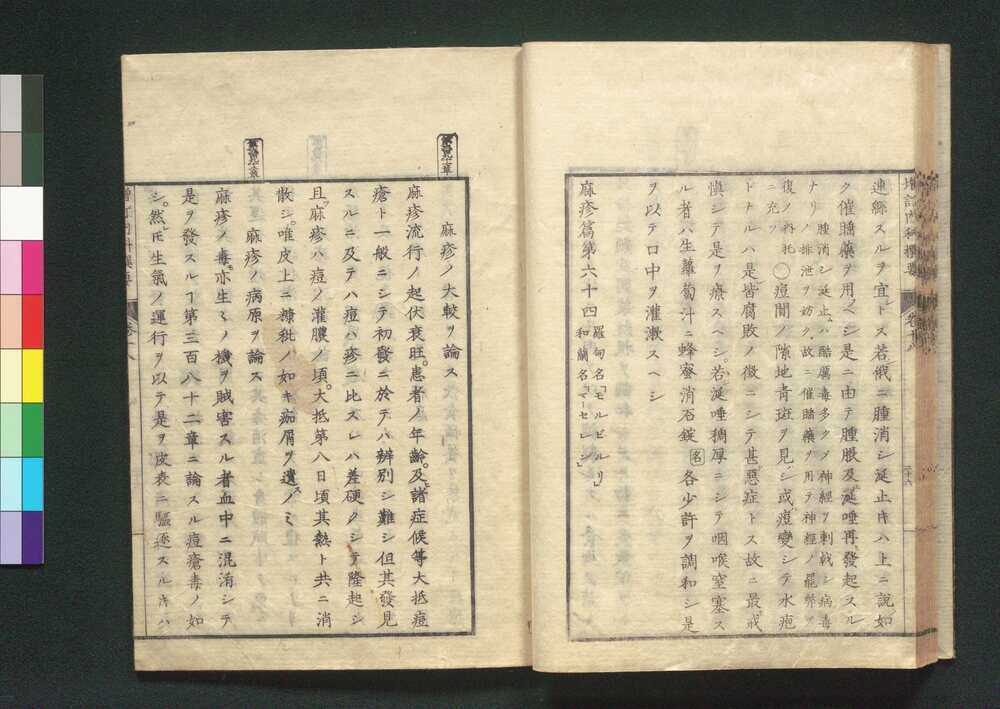 連綿スルヲ宜トス若俄ニ腫消シ涎止キハ上ニ説如
ク催腫藥ヲ用ベシ是ニ由テ腫脹及涎唾再發起スル
ナリ
腫消シ涎止ハ酷厲毒多ク神經ヲ刺戟シ病毒
ノ排泄ヲ妨ク故ニ催腫藥ヲ用テ神經ノ罷弊ヲ
復ノ料
ニ充ツ
○痘間ノ隙地青斑ヲ見シ或痘變シテ水疱
トナルハ是皆腐敗ノ徴ニシテ甚惡症トス故ニ最戒
慎シテ是ヲ療スベシ若涎唾稠厚ニシテ咽喉窒塞ス
ル者ハ生蘿蔔汁ニ蜂蜜消石錠名各少許ヲ調和シ是
ヲ以テロ中ヲ灌漱スヘシ
麻疹篇第六十四
羅甸名「モルビルリ」
和蘭名「マーセレン」
麻疹ノ大較ヲ論ス
麻疹流行ノ起伏衰旺患者ノ年齡及諸症候等大抵痘
瘡ト一般ニシテ初發ニ於テハ辨別シ難シ但其發見
スルニ及テハ痘ハ疹ニ比スレハ差硬クシテ隆起シ
且麻疹ハ痘ノ灌膿ノ頃大抵第八日頃其熱ト共ニ消
散シ唯皮上ニ糠粃ノ如キ痂屑ヲ遺スノミ
麻疹ノ病原ヲ論ス
麻疹ノ毒亦生々ノ機ヲ賊害スル者血中ニ混淆シテ
是ヲ發スルヿ第三百八十二章ニ論スル痘瘡毒ノ如
シ然𪜈生氣ノ運行ヲ以テ是ヲ皮表ニ驅逐スルキハ